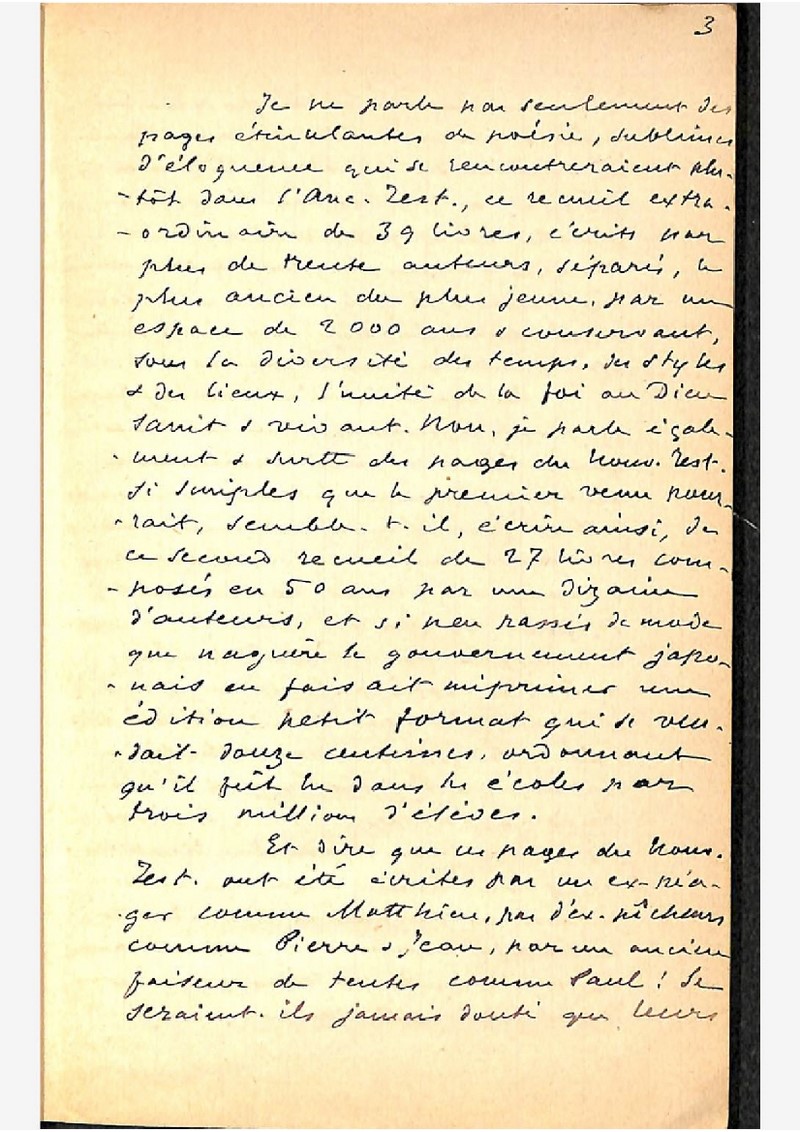 3
Je ne parle pas seulement des
pages étincelantes de poésie, sublimes
d'éloquence qui se rencontreraient plu-
-tôt dans l'Anc. Test., ce recueil extra-
-ordinaire de 39 livres, écrits par
plus de trente auteurs, séparés, le
plus ancien du plus jeune, par un
espace de 2000 ans & conservant,
sous la diversité des temps, des styles
& des lieux, l'unité de la foi au Dieu
saint & vivant. Non, je parle égale-
-ment & surtt des pages du Nouv. Test.
si simples que le premier venu pour-
-rait, semble-t-il, écrire ainsi, de
ce second recueil de 27 livres com-
-posés en 50 ans par une dizaine
d'auteurs, et si peu passés de mode
que naguère le gouvernement japo-
-nais en faisait imprimer une
édition petit format qui se ven-
-dait douze centimes, ordonnant
qu'il fût lu dans les écoles par
trois millions d'élèves.
Et dire que ces pages du Nouv.
Test. ont été écrites par un ex-péa-
-ger comme Matthieu, par d'ex-pêcheurs
comme Pierre & Jean, par un ancien
faiseur de tentes comme Paul ! Se
seraient-ils jamais douté que leurs